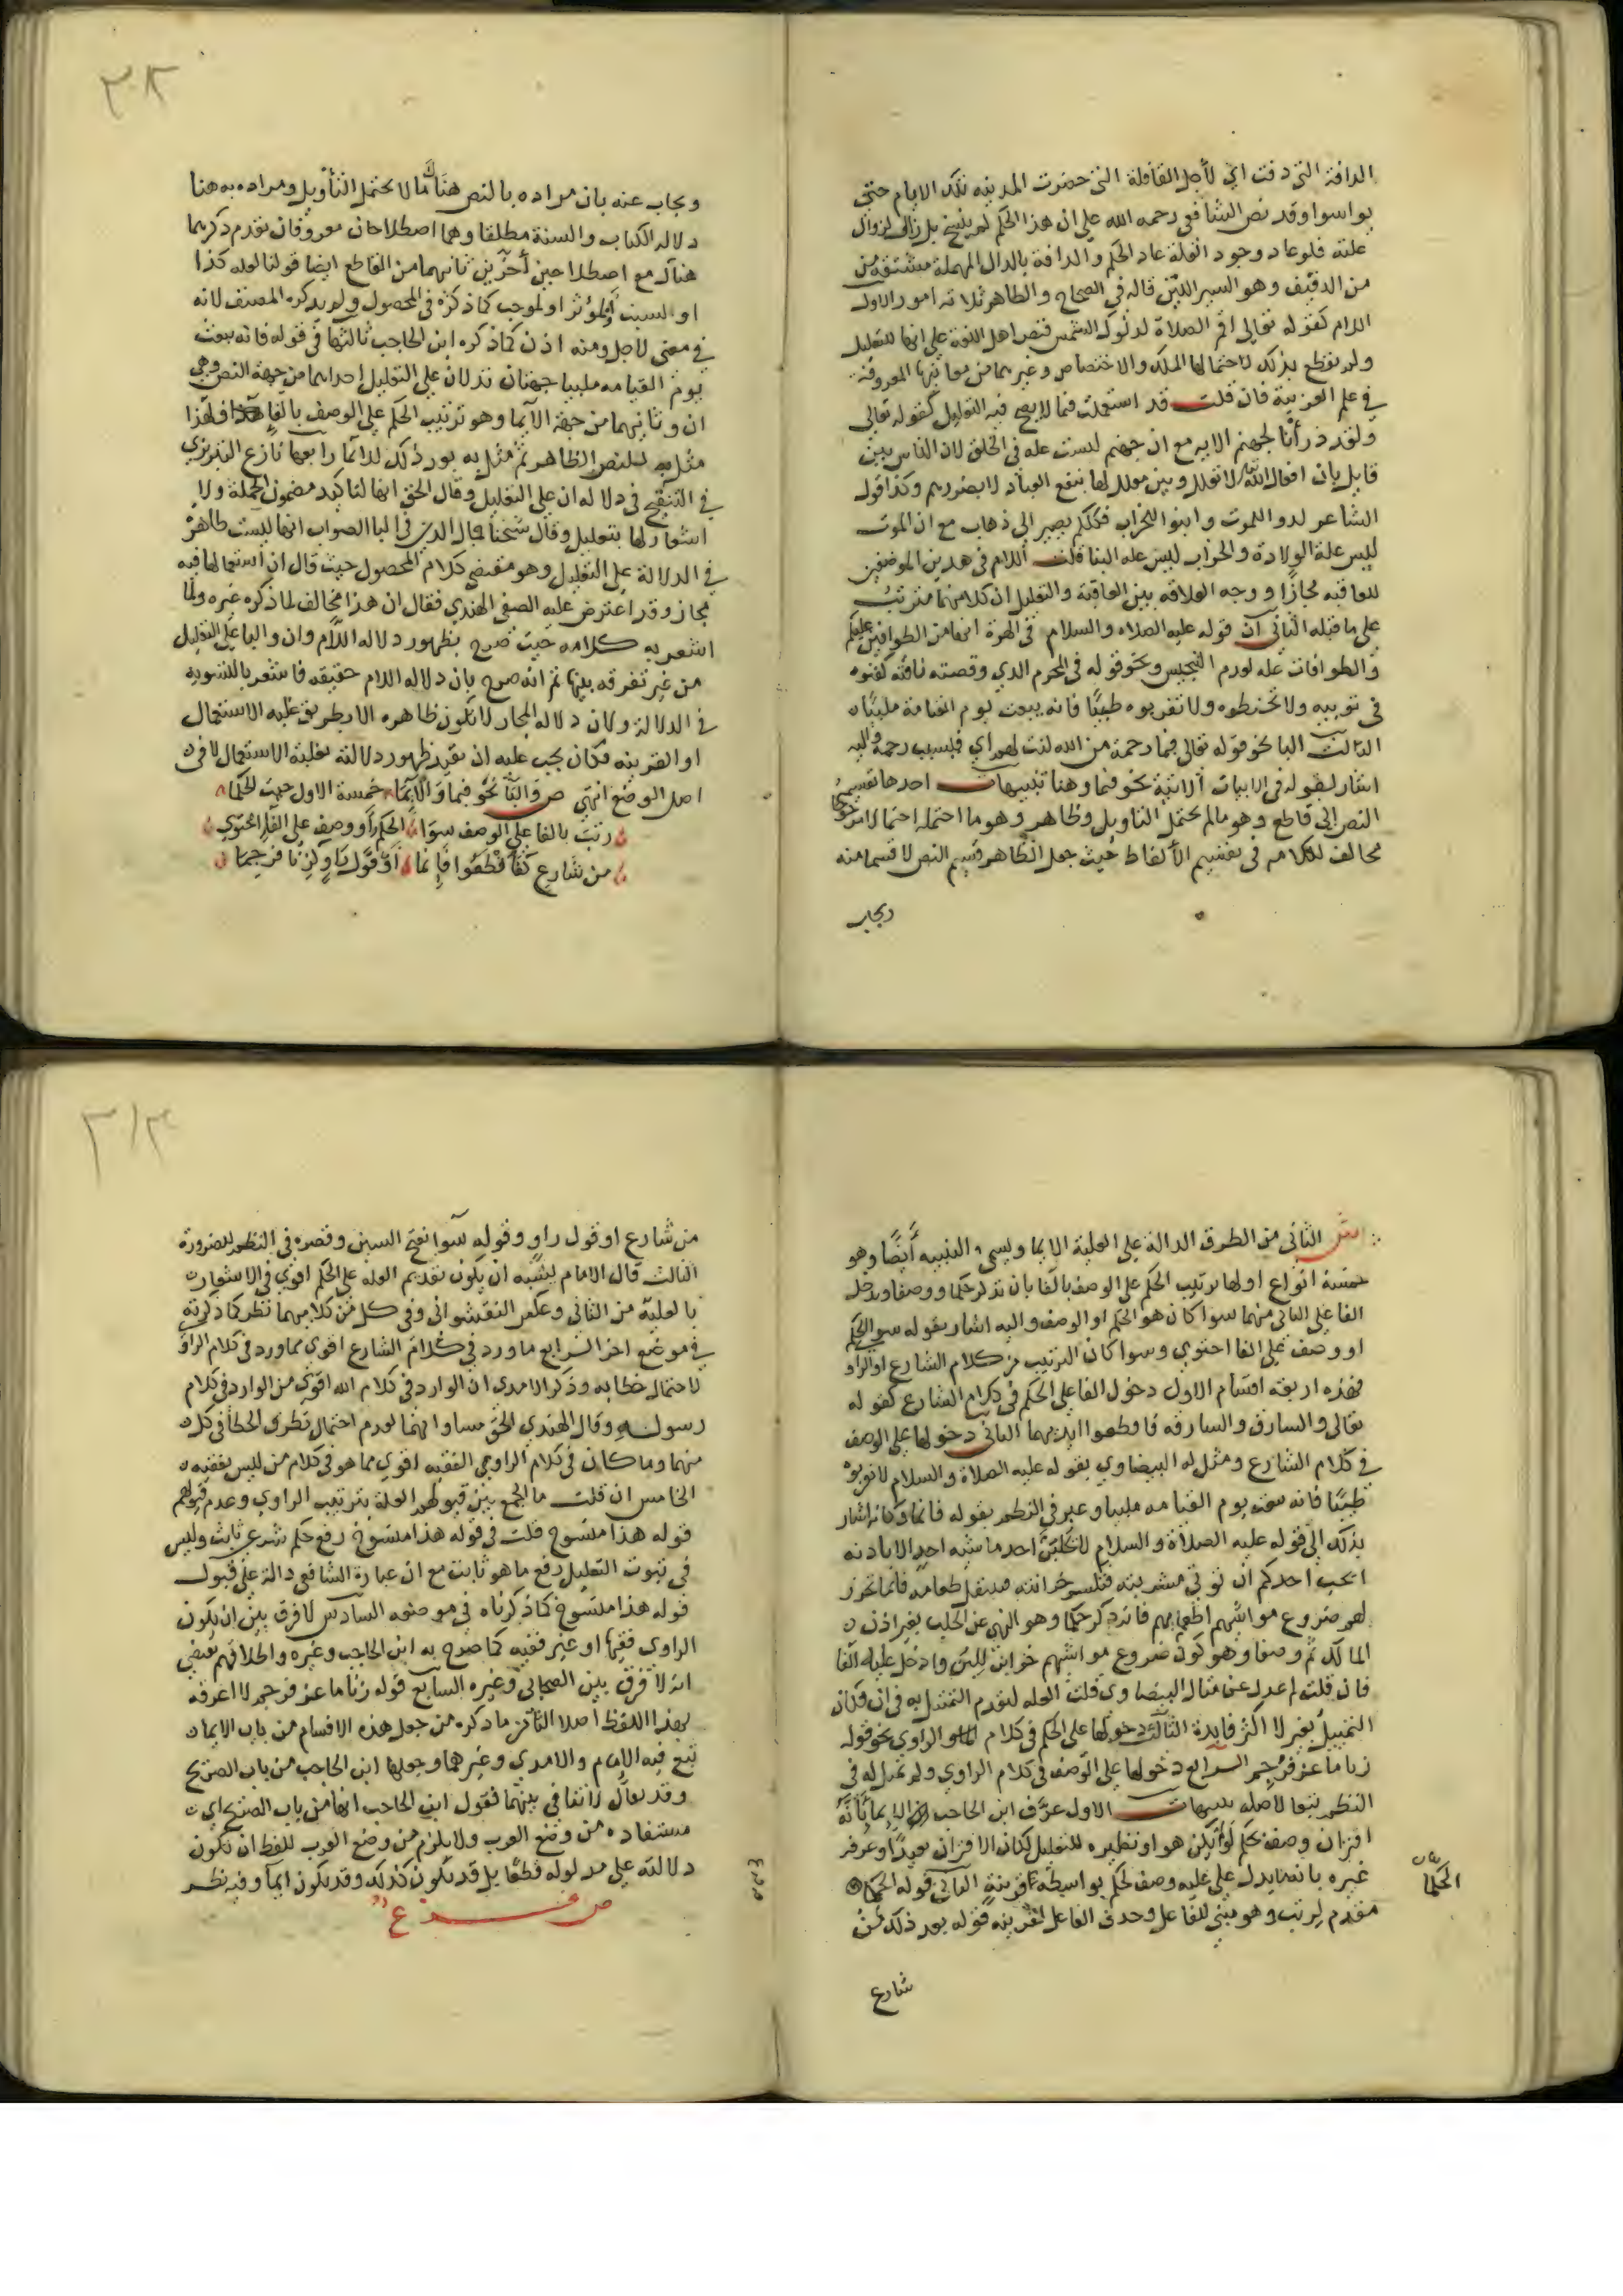 الدافة التي دفت اي لأجل القافلة التي حضرت المدينه تلك الايام حتي
يواسوا وقد نص الشافعي رحمه الله علي ان هذا الحكم لم ينسخ بل زال لزوال
علته فلو عاد وجود العلة عاد الحكم والدافة بالدال المهملة مشتقة من
من الدفيف وهو السير اللين قاله في الصحاح والظاهر ثلاثه امور الاول
اللام كقوله تعالي اقم الصلاة لدلوك الشمس فنص اهل اللغة علي انها للتعليل
ولم نقطع بذلك لاحتمالها الملك والاختصاص وغيرهما من معانيها المعروفة
في علم العربية فان قلت قد استعملت فيما لا يصح فيه التعليل كقوله تعالي
ولقد ذرأنا لجهنم الايه مع ان جهنم ليست عله في الخلق لان الناس بين
قايل بان افعال الله لا تعلل وبين معلل لها بنفع العباد لا بضررهم وكذا قوله
الشاعر لدوا للموت وابنوا للخراب فكلكم يصير الي ذهاب مع ان الموت
ليس علة الولادة والخراب ليس عله البنا قلت اللام في هذين الموضعين
للعاقبه مجازًا ووجه العلاقه بين العاقبة والتعليل ان كلا منهما مترتب
علي ما قبله الثاني ان قوله عليه الصلاه والسلام في الهرة انها من الطوافين عليكم
والطوافات عله لعدم التنجيس ونحو قوله في المحرم الذي وقصته ناقته كفنوه
في ثوبيه ولا تحنطوه ولا تقربوه طيبًا فانه يبعث يوم القيامة ملبيًا
الثالث البا نحو قوله تعالي فبما رحمة من الله لنت لهم اي فبسبب رحمة واليه
اشار بقوله في الابيات الاتية نحو فبما وهنا تنبيهات احدها تقسيمه
النص الي قاطع وهو ما لم يحتمل التاويل وظاهر وهو ما احتمله احتمالا مرجوحا
مخالف لكلامه في تقسيم الألفاظ حيث جعل الظاهر قسيم النص لا قسما منه
ويجاب
ويجاب عنه بان مراده بالنص هناك ما لا يحتمل التأويل ومراده به هنا
دلاله الكتاب والسنة مطلقا وهما اصطلاحان معروفان تقدم ذكرهما
هناك مع اصطلاحين أخرين ثانيهما من القاطع ايضا قولنا لعله كذا
او السبب او لمؤثر او لموجب كما ذكره في المحصول ولم يذكره المصنف لانه
في معني لاجل ومنه اذن كما ذكره ابن الحاجب ثالثها في قوله فانه يبعث
يوم القيامه ملبيا جهتان تدلان علي التعليل احداهما من جهة النص وهي
ان وثانيهما من جهة الايما وهو ترتيب الحكم علي الوصف بالفا فلهذا
مثل به للنص الظاهر ثم مثل به بعد ذلك للايما رابعها نازع التبريزي
في التنقيح في دلاله ان علي التعليل وقال الحق انها لتاكيد مضمون الجملة ولا
اشعار لها بتعليل وقال شيخنا جمال الدين في البا الصواب انها ليست ظاهرة
في الدلالة علي التعليل وهو مقتضي كلام المحصول حيث قال ان استعمالها فيه
مجاز وقد اعترض عليه الصفي الهندي فقال ان هذا مخالف لما ذكره غيره ولما
اشعر به كلامه حيث صرح بظهور دلاله اللام وان والبا علي التعليل
من غير تفرقه بينها ثم انه صرح بان دلاله اللام حقيقه فاشعر بالتسوية
في الدلالة ولان دلاله المجاز لا تكون ظاهره الا بطريق غلبه الاستعمال
او القرينه فكان يجب عليه ان يقيد ظهور دلالته بغلبة الاستعمال لا في
اصل الوضع انتهي ص والبا نحو فبما والايما خمسة الاول حيث الحكما
رتب بالفا علي الوصف سوا الحكم أو وصف علي الفا احتوي
من شارع كفاقطعوا فانما أو قول راو كزنا فرجما
ش الثاني من الطرق الدالة علي العلية الايما ويسمي التنبيه أيضًا وهو
خمسة انواع اولها ترتيب الحكم علي الوصف بالفا بان تذكر حكما ووصفا ويدخل
الفا علي الثاني منهما سوا كان هو الحكم او الوصف واليه اشار بقوله سو الحكم
او وصف علي الفا احتوي وسوا كان الترتيب من كلام الشارع او الراو
فهذه اربعة اقسام الاول دخول الفا علي الحكم في كلام الشارع كقوله
تعالي والسارق والسارقه فاقطعوا ايديهما الثاني دخولها علي الوصف
في كلام الشارع ومثل له البيضاوي بقوله عليه الصلاة والسلام لا تقربوه
طيبًا فانه يبعث يوم القيامه ملبيا وعبر في النظم بقوله فانما وكانه اشار
بذلك الي قوله عليه الصلاة والسلام لا يحلبن احد ماشيه احد الا باذنه
ايحب احدكم ان توتي مشربته فتكسر خزانته فينتقل طعامه فانما تخزن
لهم ضروع مواشيهم اطعماتهم فانه ذكر حكما وهو النهي عن الحلب بغير اذن
المالك ثم وصفا وهو كون ضروع مواشيهم خزاين للبن وادخل عليه الفا
فان قلت لم عدل عن مثال البيضاوي قلت لعله لتقدم التمثيل به في ان فكان
التمثيل بغيره اكثر فايدة الثالث دخولها علي الحكم في كلام الراوي نحو قوله
زنا ماعز فرجم الرابع دخولها علي الوصف في كلام الراوي ولم يمثل له في
النظم تبعا لاصله تنبيهات الاول عرف ابن الحاجب الايما بأنه
اقتران وصف بحكم لو لم يكن هو او نظيره للتعليل لكان الاقتران بعيدًا وعرفه
غيره بانه ما يدل علي عليه وصف لحكم بواسطة قرينة الثاني قوله الحكما
الحكما
مقدم لرتب وهو مبني للفاعل وحذف الفاعل لقرينه قوله بعد ذلك من
شارع
من شارع او قول راو وقوله سوا بفتح السين وقصره في النظم للضرورة
الثالث قال الامام يشبه ان يكون تقديم العله علي الحكم اقوي في الاشعار
بالعلية من الثاني وعكس النقشواني وفي كل من كلاميهما نظر كما ذكرته
في موضع اخر الرابع ما ورد في كلام الشارع اقوي مما ورد في كلام الراو
لاحتمال خطابه وذكر الامدي ان الوارد في كلام الله اقوي من الوارد في كلام
رسوله وقال الهندي الحق مساواتهما لعدم احتمال تطرق الخطأ في كل
منهما وما كان في كلام الراوي الفقيه اقوي مما هو في كلام من ليس بفقيه
الخامس ان قلت ما الجمع بين قبولهم العلة بترتيب الراوي وعدم قبولهم
قوله هذا منسوخ قلت في قوله هذا منسوخ رفع حكم شرعي ثابت وليس
في ثبوت التعليل رفع ما هو ثابت مع ان عبارة الشافعي دالة علي قبول
قوله هذا منسوخ كما ذكرناه في موضعه السادس لا فرق بين ان يكون
الراوي فقيها او غير فقيه كما صرح به ابن الحاجب وغيره واطلاقهم يقتضي
انه لا فرق بين الصحابي وغيره السابع قوله زنا ماعز فرجم لا اعرفه
بهذا اللفظ اصلا الثامن ما ذكره من جعل هذه الاقسام من باب الايما
تبع فيه الامام والامدي وغيرهما وجعلها ابن الحاجب من باب الصريح
وقد يقال لا تنافي بينهما فقول ابن الحاجب انها من باب الصريح اي
مستفاده من وضع العرب ولا يلزم من وضع العرب للفظ ان تكون
دلالته علي مدلوله قطعًا بل قد يكون كذلك وقد يكون ايماً وفيه نظر
ص فرع